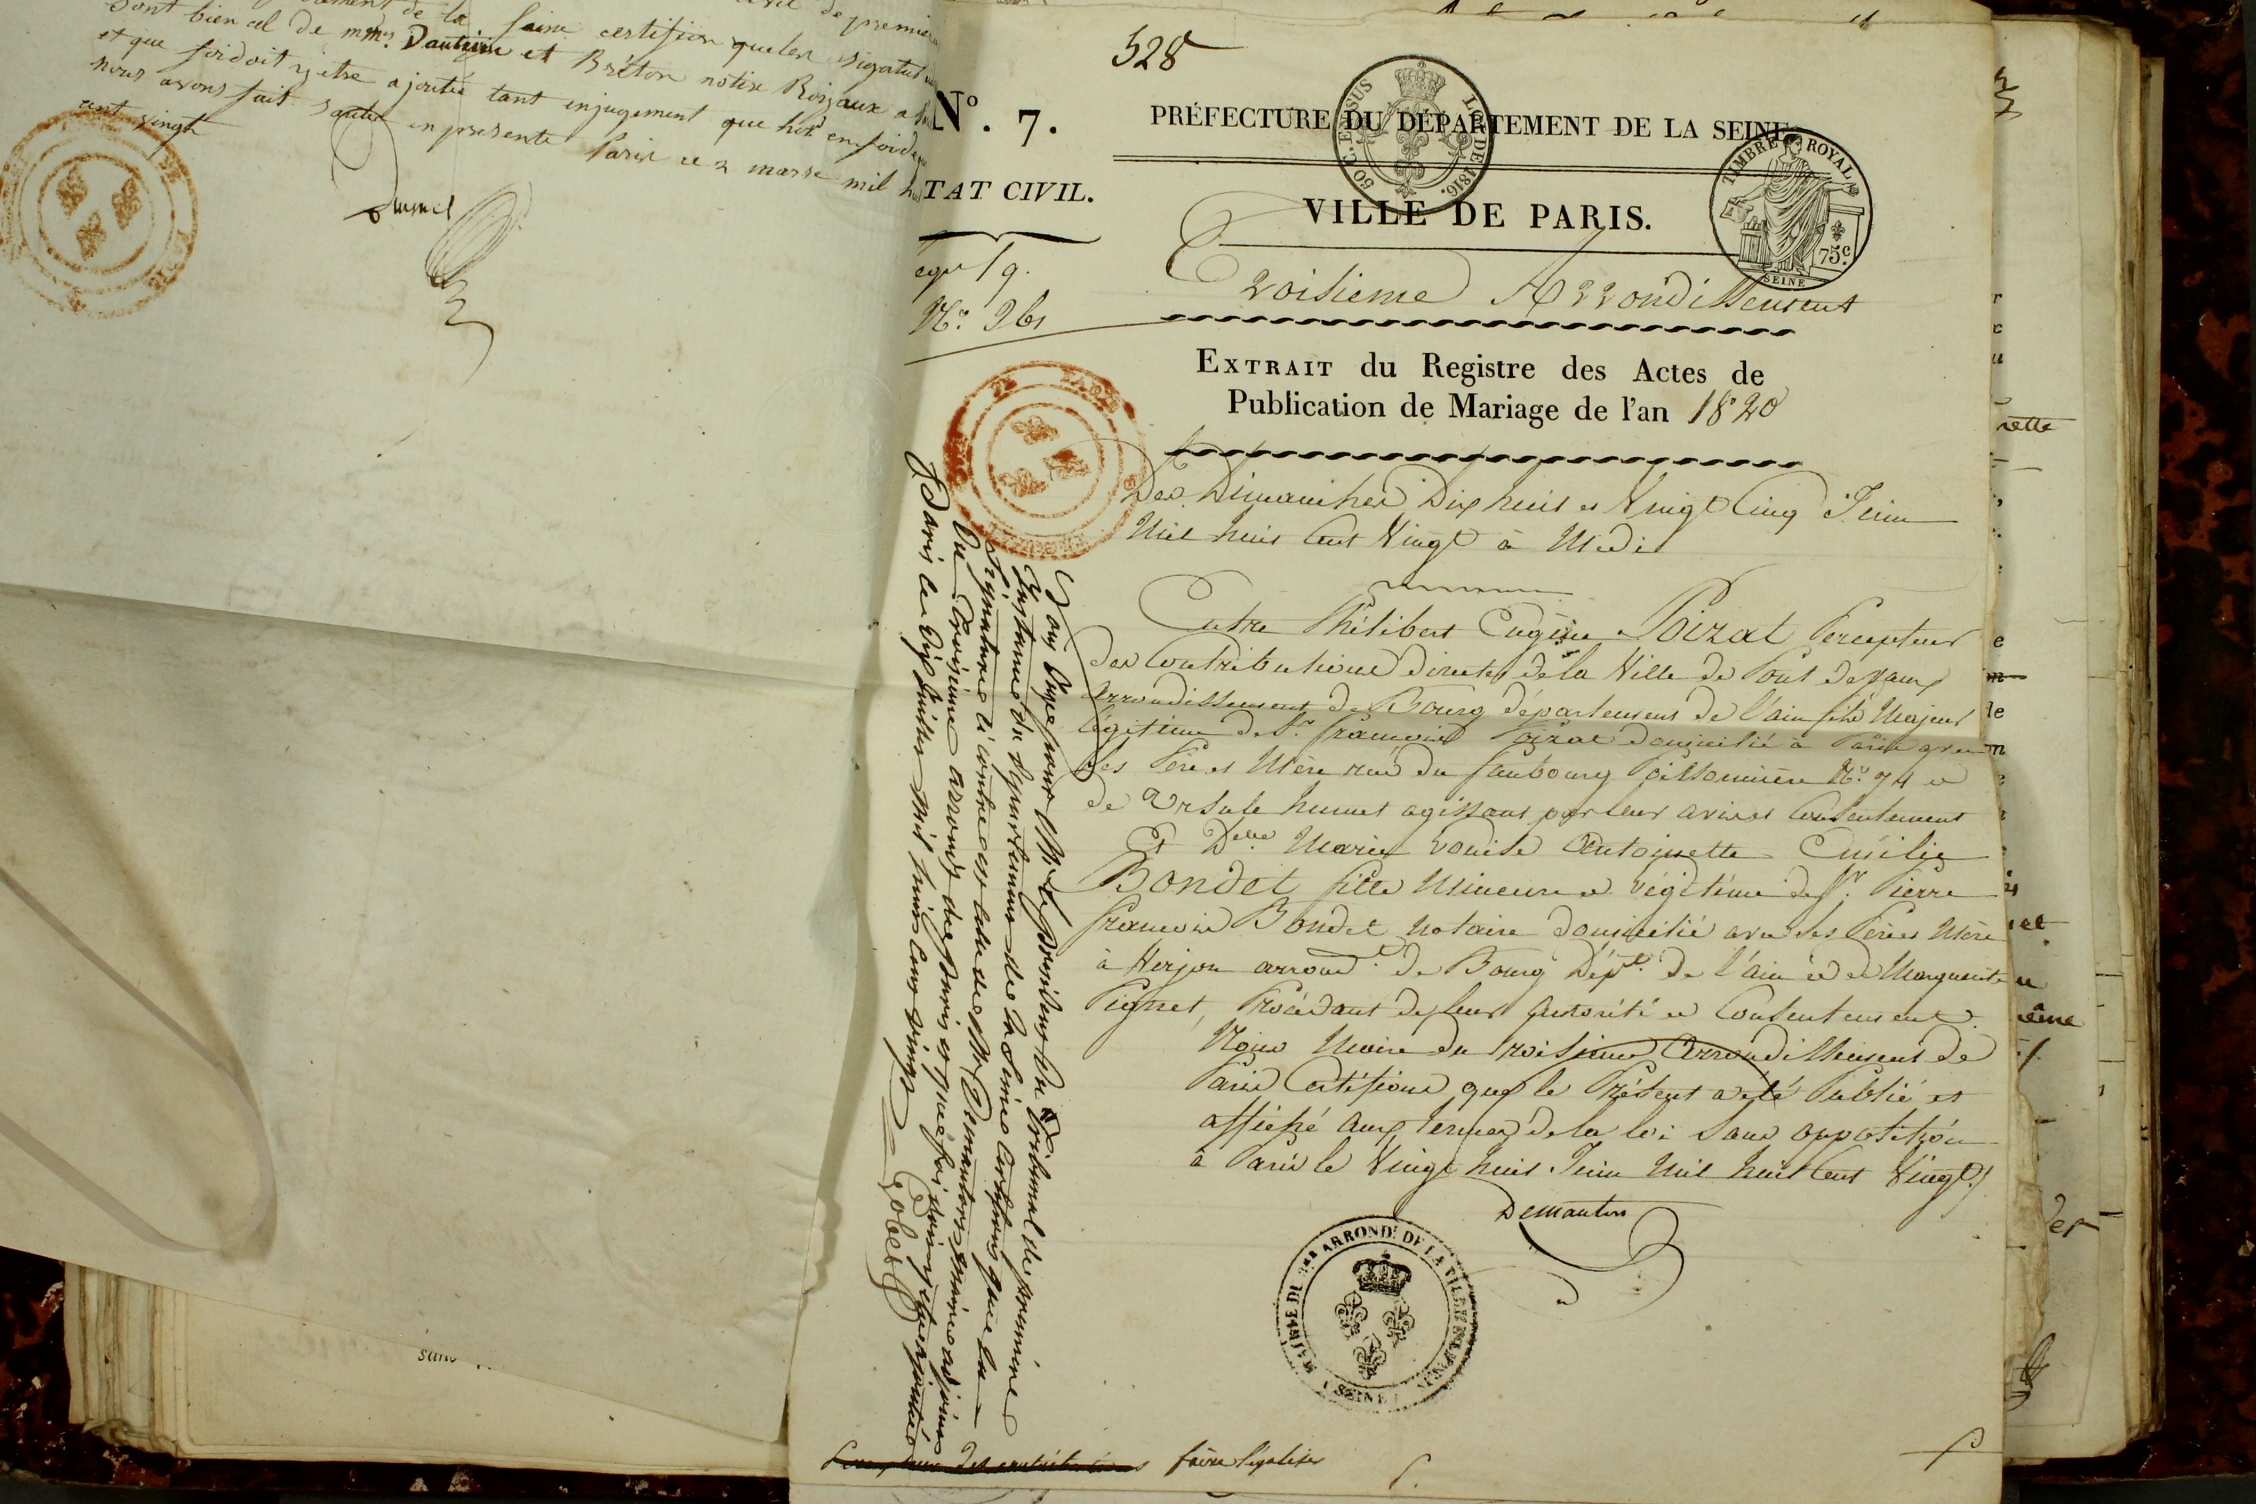 sont bien cel de mrs Dautrive et Bréton notire Roijaux a
et que foi doit y etre ajoutée tant enjugement que hor enfoide
nous avons fait en presente Paris ce 2 marse mil
cent vingt
528
N°. 7.
PRÉFECTURE DU DÉPARTEMENT DE LA SEINE
50 C. EN SUS
LOI DE 1816.
TIMBRE ROYAL
75c
SEINE
TAT CIVIL.
VILLE DE PARIS.
Troisieme Arrondissement
N°. 261
EXTRAIT du Registre des Actes de
Publication de Mariage de l'an 1820
Des Dimanches Dix huit et Vingt Cinq Juin
Mil huit Cent Vingt à Midi
Entre Philibert Eugène Poizat Percepteur
des Contributions directes de la Ville de Pont de Vaux
arrondissement de Bourg département de l'ain fils Majeur
légitime de Sr. françois Poizat domicilié à Paris avec
ses Père et Mère rue du faubourg Poissonnière N°. 74 et
de Ursule humet agissant par leur avis et Consentement
Et Delle Marie Louise Antoinette Emilie
Bondet fille Mineure et légitime de Sr. Pierre
françois Bondet notaire domicilié avec ses Père et Mère
à Verjon arrondt. de Bourg Dépt. de l'ain et de Marguerite
Pignet, Procédant de leur autorité et Consentement.
Nous Maire du troisieme Arrondissement de
Paris Certifions que le Présent a été Publié et
affiché aux termes de la loi Sans opposition
à Paris le Vingt huit Juin Mil huit Cent Vingt
Demautort
MAIRIE DU 3me ARRONDt DE LA VILLE DE PARIS
(SEINE)
Nous Vice président du Tribunal de première
Instance du département de la Seine Certifions que la
signature ci contre est celle de Mr. Demautort maire adjoint
du Troisieme arrondt. de Paris et que foi doit y etre ajoutée
à Paris le Dix Juillet mil huit cent vingt
faire légaliser